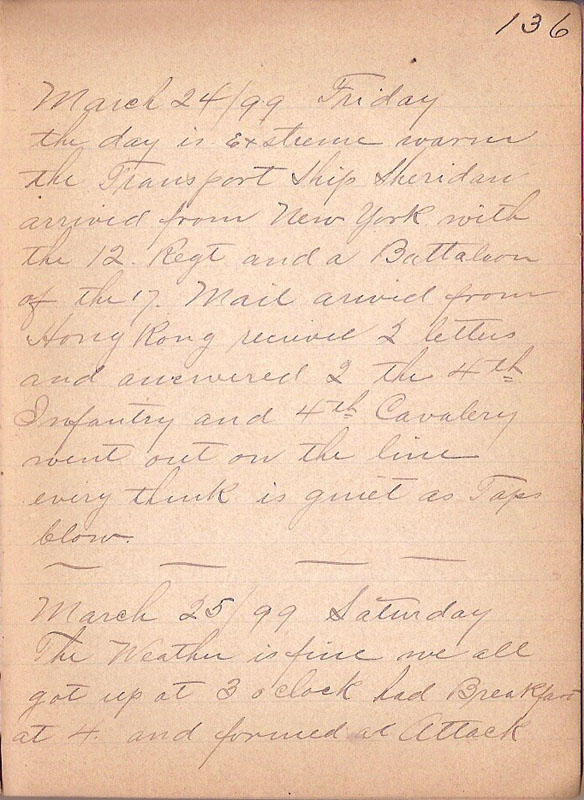 136
March 24/99 Friday
the day is Extreme warm
the Transport Ship Sheridan
arrived from New York with
the 12. Regt and a Battaleon
of the 17. Mail arivid from
Hong Kong recived 2 letters
and answered 2 the 4th
Infantry and 4th Cavalery
went out on the line
every think is quiet as Taps
blow.
March 25/99 Saturday
The Weather is fine we all
got up at 3 oclock had Breakfast
at 4. and formed at Attack